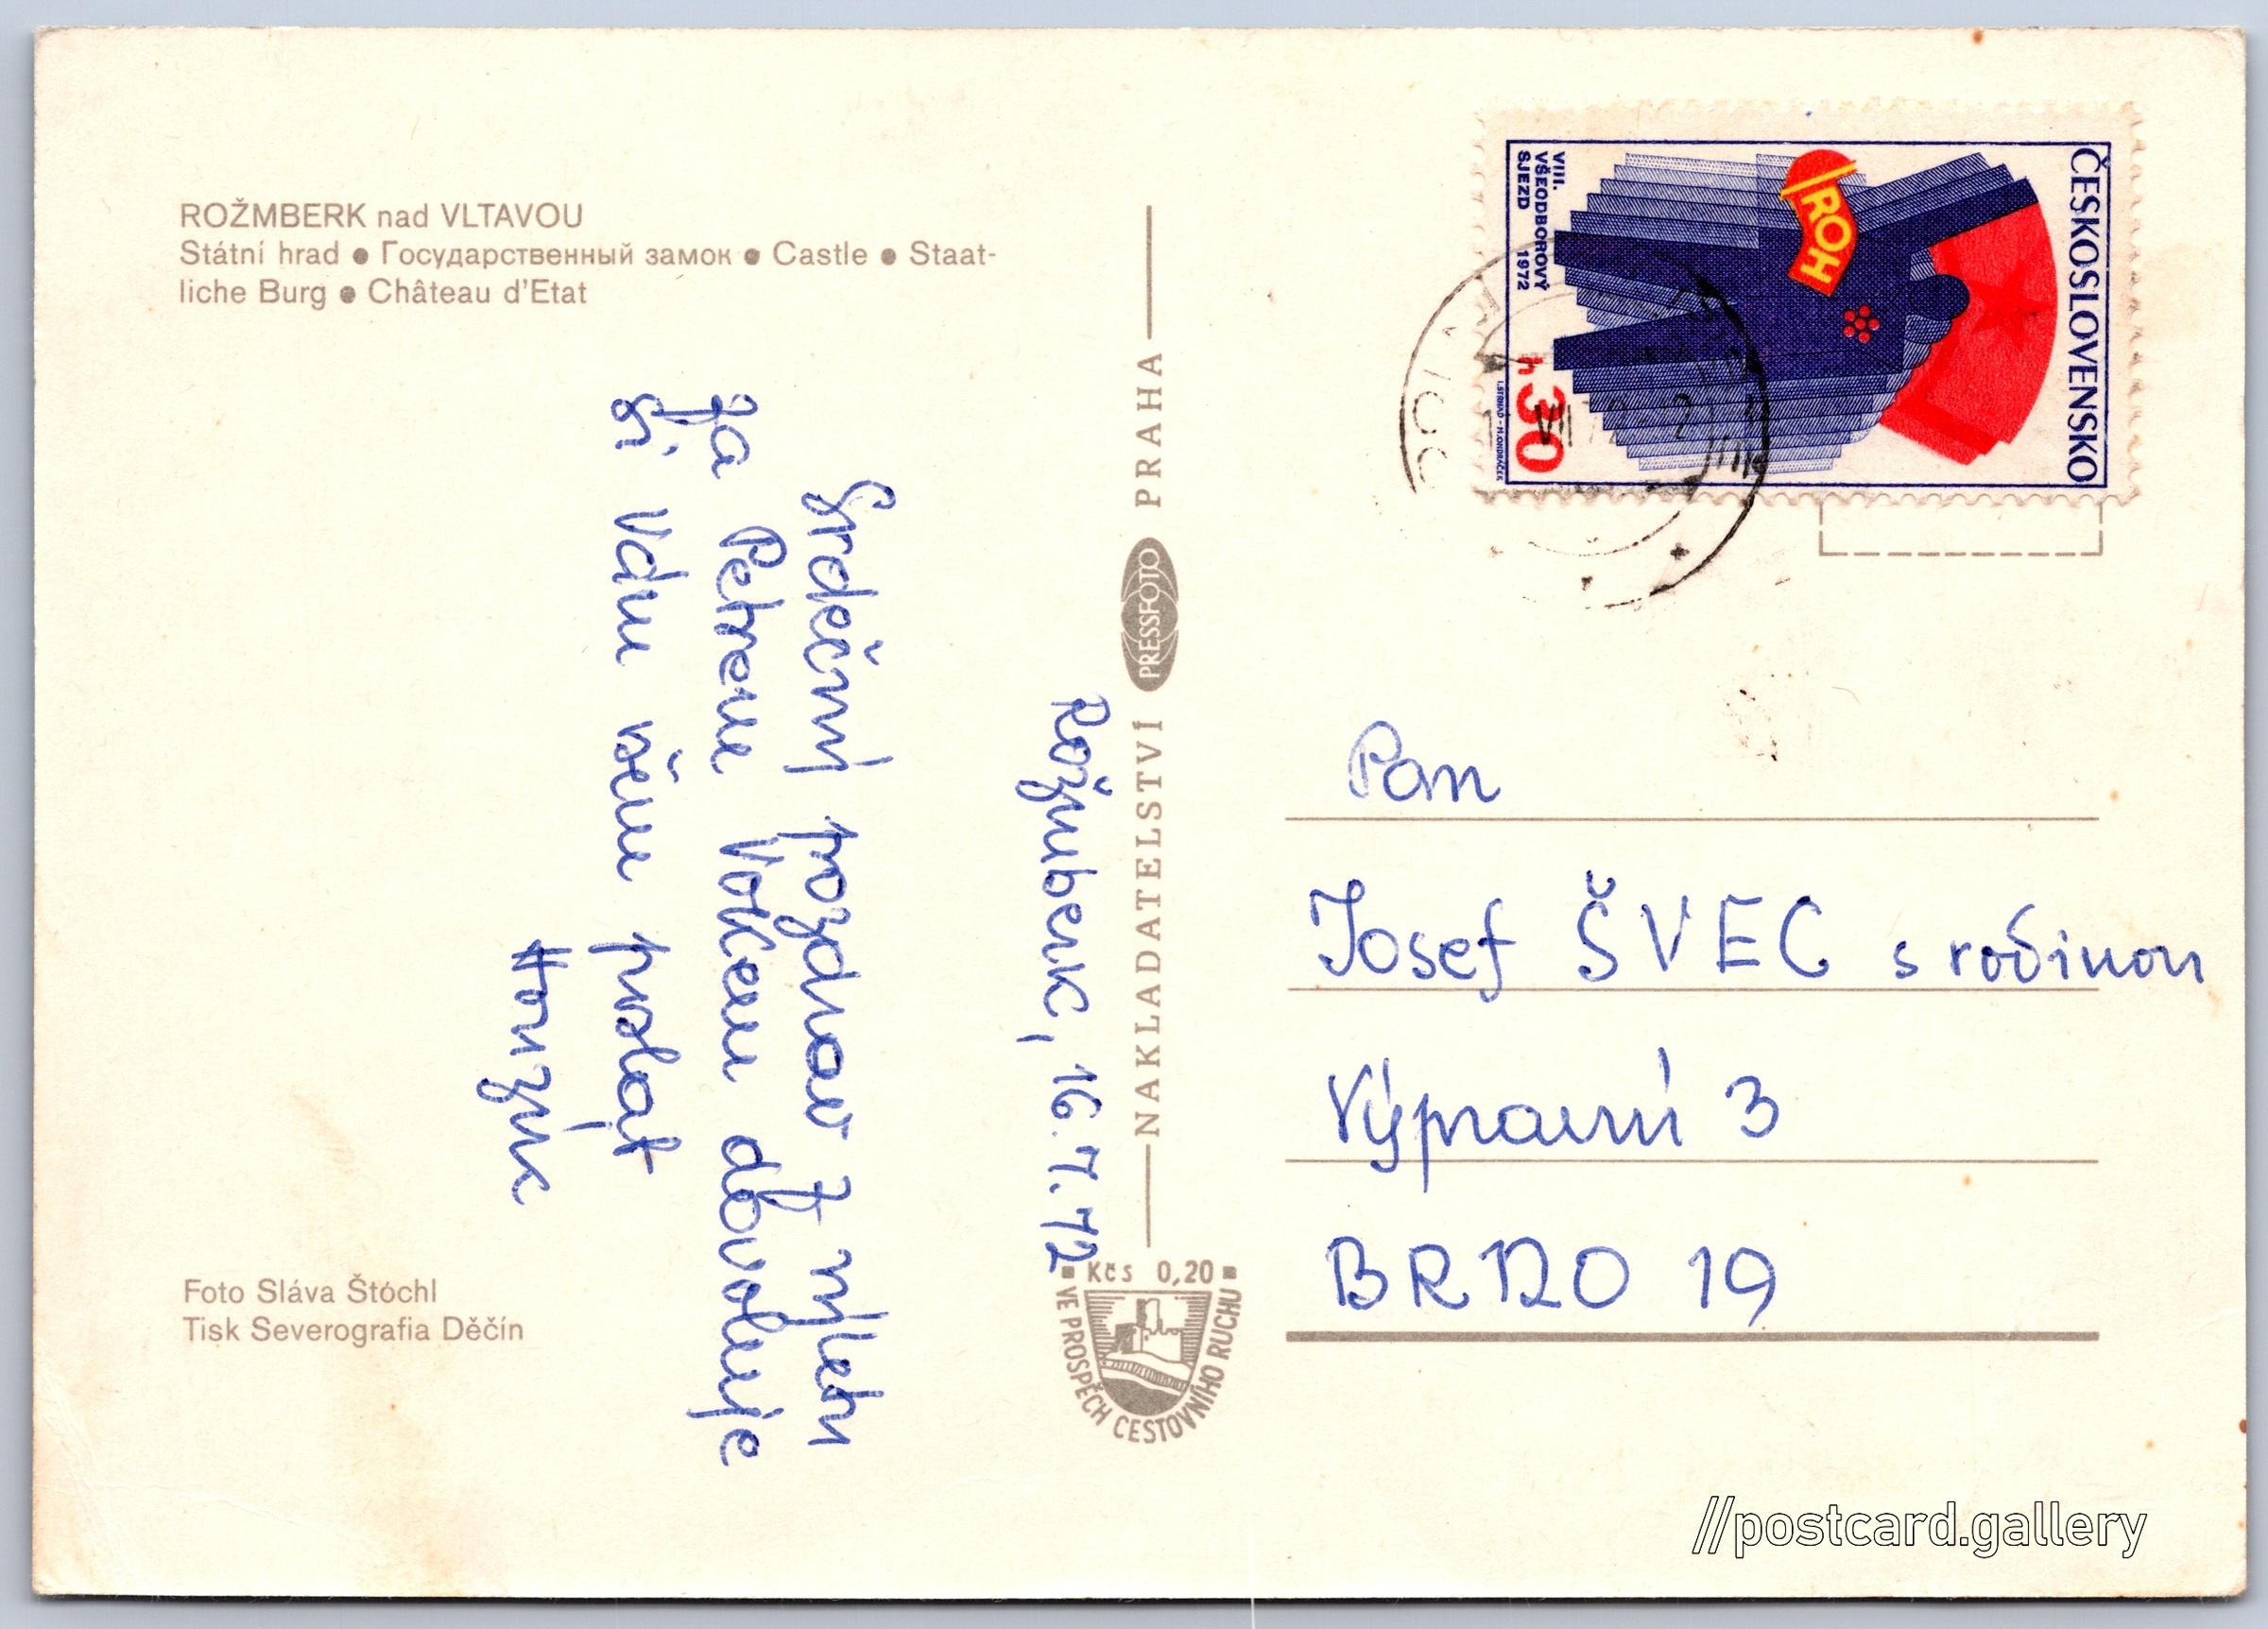 ROŽMBERK nad VLTAVOU
Státní hrad ● Государственный замок ● Castle ● Staat-
liche Burg ● Château d'Etat
Rožmberk, 16.7.72
Srdečný pozdrav z výletu
za Petrem Vokem dovoluje
si Vám všem poslat
Honzík
Foto Sláva Štochl
Tisk Severografia Děčín
NAKLADATELSTVÍ PRESSFOTO PRAHA
Kčs 0,20
VE PROSPĚCH CESTOVNÍHO RUCHU
ČESKOSLOVENSKO
ROH
VIII.
VŠEODBOROVÝ
SJEZD 1972
30 h
I.STRNAD - M.ONDRÁČEK
VII 72
Pan
Josef ŠVEC s rodinou
Výpravní 3
BRNO 19
//postcard.gallery